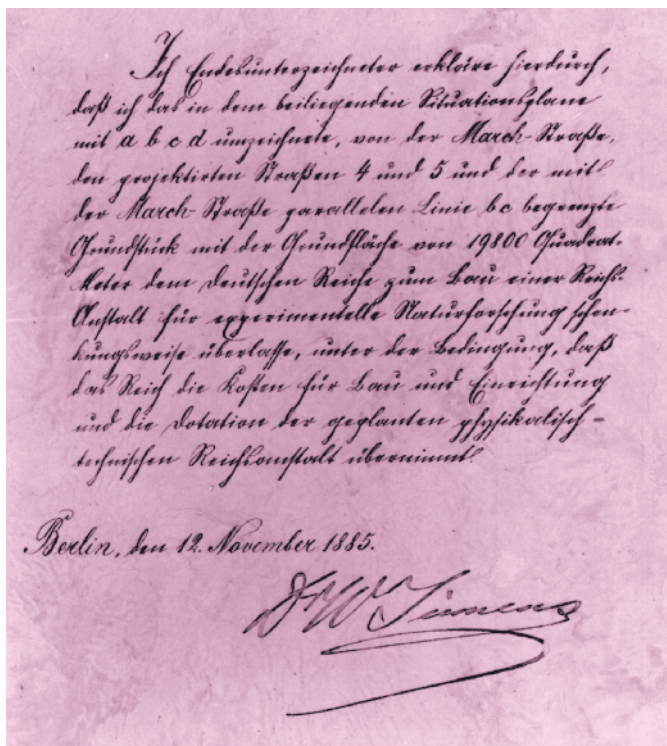 Ich Endesunterzeichneter erkläre hierdurch,
daß ich das in dem beiliegenden Situationsplane
mit a b c d umzeichnete, von der March-Straße,
den projektirten Straßen 4 und 5 und der mit
der March-Straße parallelen Linie bc begrenzte
Grundstück mit der Grundfläche von 19800 Quadrat-
Meter dem Deutschen Reiche zum Bau einer Reichs-
Anstalt für experimentelle Naturforschung schen-
kungsweise überlasse, unter der Bedingung, daß
das Reich die Kosten für Bau und Einrichtung
und die Dotation der geplanten physikalisch-
technischen Reichsanstalt übernimmt.
Berlin, den 12. November 1885.
Dr W Siemens